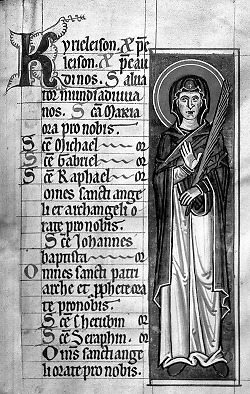 Kyrieleison. Xpe
leison. Xpe au
di nos. Salua
tor mundi adiuua
nos. Sca Maria
ora pro nobis.
Sce Michael or
Sce Gabriel or
Sce Raphael or
omnes sancti ange
li et archangeli o
rate pro nobis.
Sce Johannes
baptista or
Omnes sancti patri
arche et pphete ora
te pro nobis.
Sce Cherubin or
Sce Seraphin. or
Oms sancti ange
li orate pro nobis.